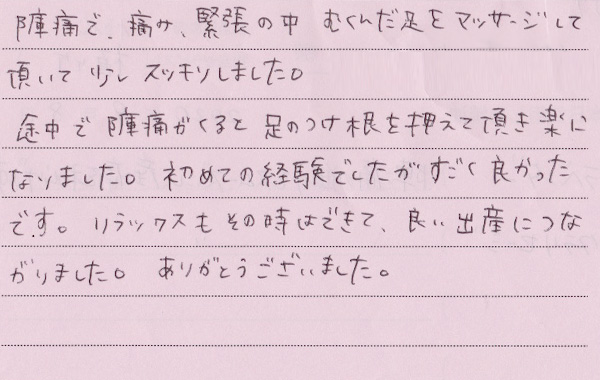 陣痛で、痛み、緊張の中 むくんだ足をマッサージして
頂いて少しスッキリしました。
途中で陣痛がくると足のつけ根を押えて頂き楽に
なりました。初めての経験でしたがすごく良かった
です。リラックスもその時はできて、良い出産につな
がりました。ありがとうございました。